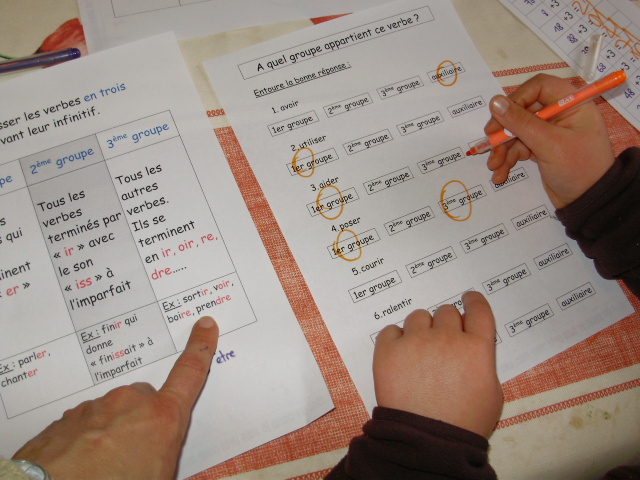 sser les verbes en trois
vant leur infinitif.
pe
2ème groupe
3ème groupe
s
s qui
inent
« er »
Tous les
verbes
terminés par
« ir » avec
le son
« iss » à
l'imparfait
Tous les
autres
verbes.
Ils se
terminent
en ir, oir, re,
dre.....
Ex : parler,
chanter
Ex : finir qui
donne
« finissait » à
l'imparfait
Ex : sortir, voir,
boire, prendre
être
A quel groupe appartient ce verbe ?
Entoure la bonne réponse :
1. avoir
1er groupe 2ème groupe 3ème groupe auxiliaire
2.utiliser
1er groupe 2ème groupe 3ème groupe auxiliaire
3.aider
1er groupe 2ème groupe 3ème groupe auxiliaire
4.poser
1er groupe 2ème groupe 3ème groupe auxiliaire
5.courir
1er groupe 2ème groupe 3ème groupe auxiliaire
6.ralentir
3ème groupe auxiliaire